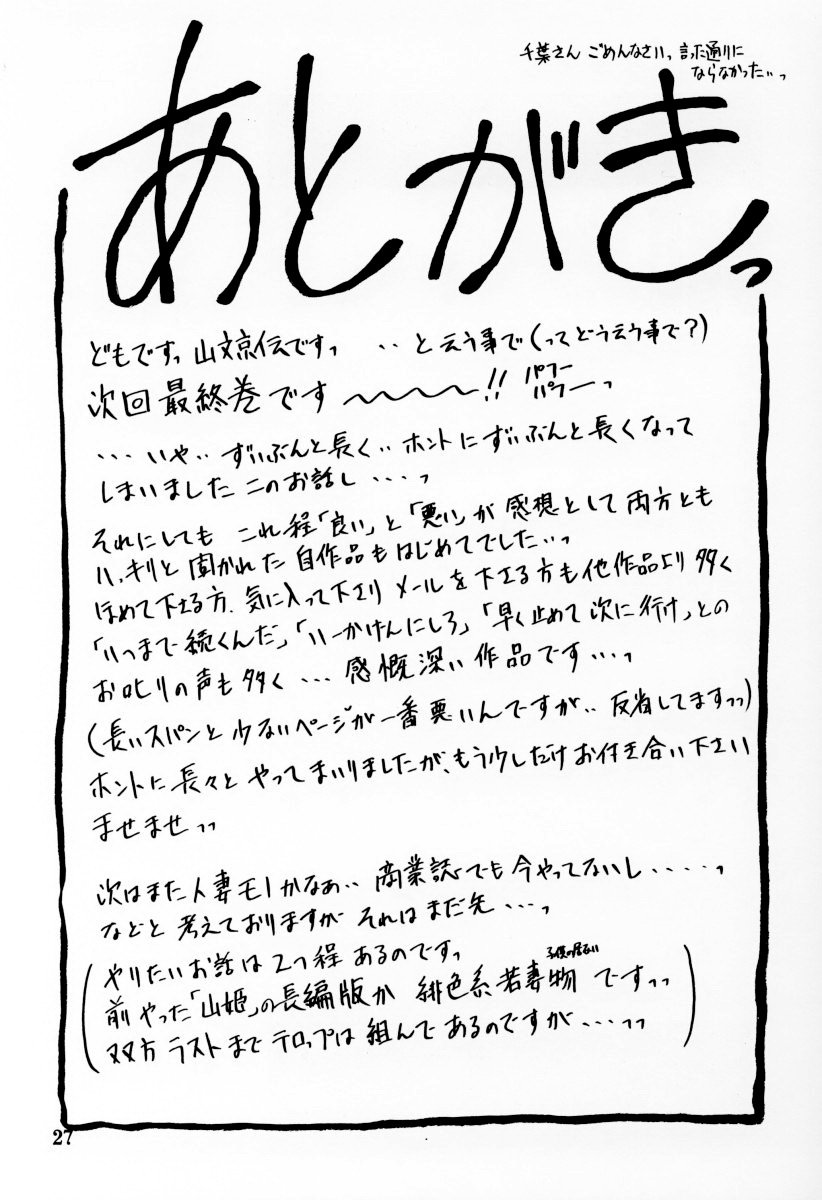 千葉さん ごめんなさいっ 言った通りに
ならなかった‥っ
あとがきっ
どもですっ 山文京伝ですっ ‥と云う事で(ってどう云う事で?)
次回最終巻です〜〜〜〜!! パフー
パフーっ
・・・いや‥ずいぶんと長く‥ホントにずいぶんと長くなって
しまいましたこのお話し・・・っ
それにしても これ程「良い」と「悪い」が感想として両方とも
ハッキリと聞かれた自作品もはじめてでした‥っ
ほめて下さる方、気に入って下さり メールを下さる方も他作品より多く
「いつまで続くんだ」「いーかげんにしろ」「早く止めて次に行け」との
お叱りの声も多く・・・感慨深い作品です・・・っ
(長いスパンと少ないページが一番悪いんですが‥反省してますっっ)
ホントに長々とやってまいりましたが、もう少しだけお付き合い下さい
ませませっっ
次はまた人妻モノかなぁ‥商業誌でも今やってないし・・・・っ
などと考えておりますが それはまだ先・・・っ
(やりたいお話は2つ程あるのですっ
前やった「山姫」の長編版か 緋色系若妻物ですっっ
子供の居ない
双方ラストまでテロップは組んであるのですが・・・っっ)
27